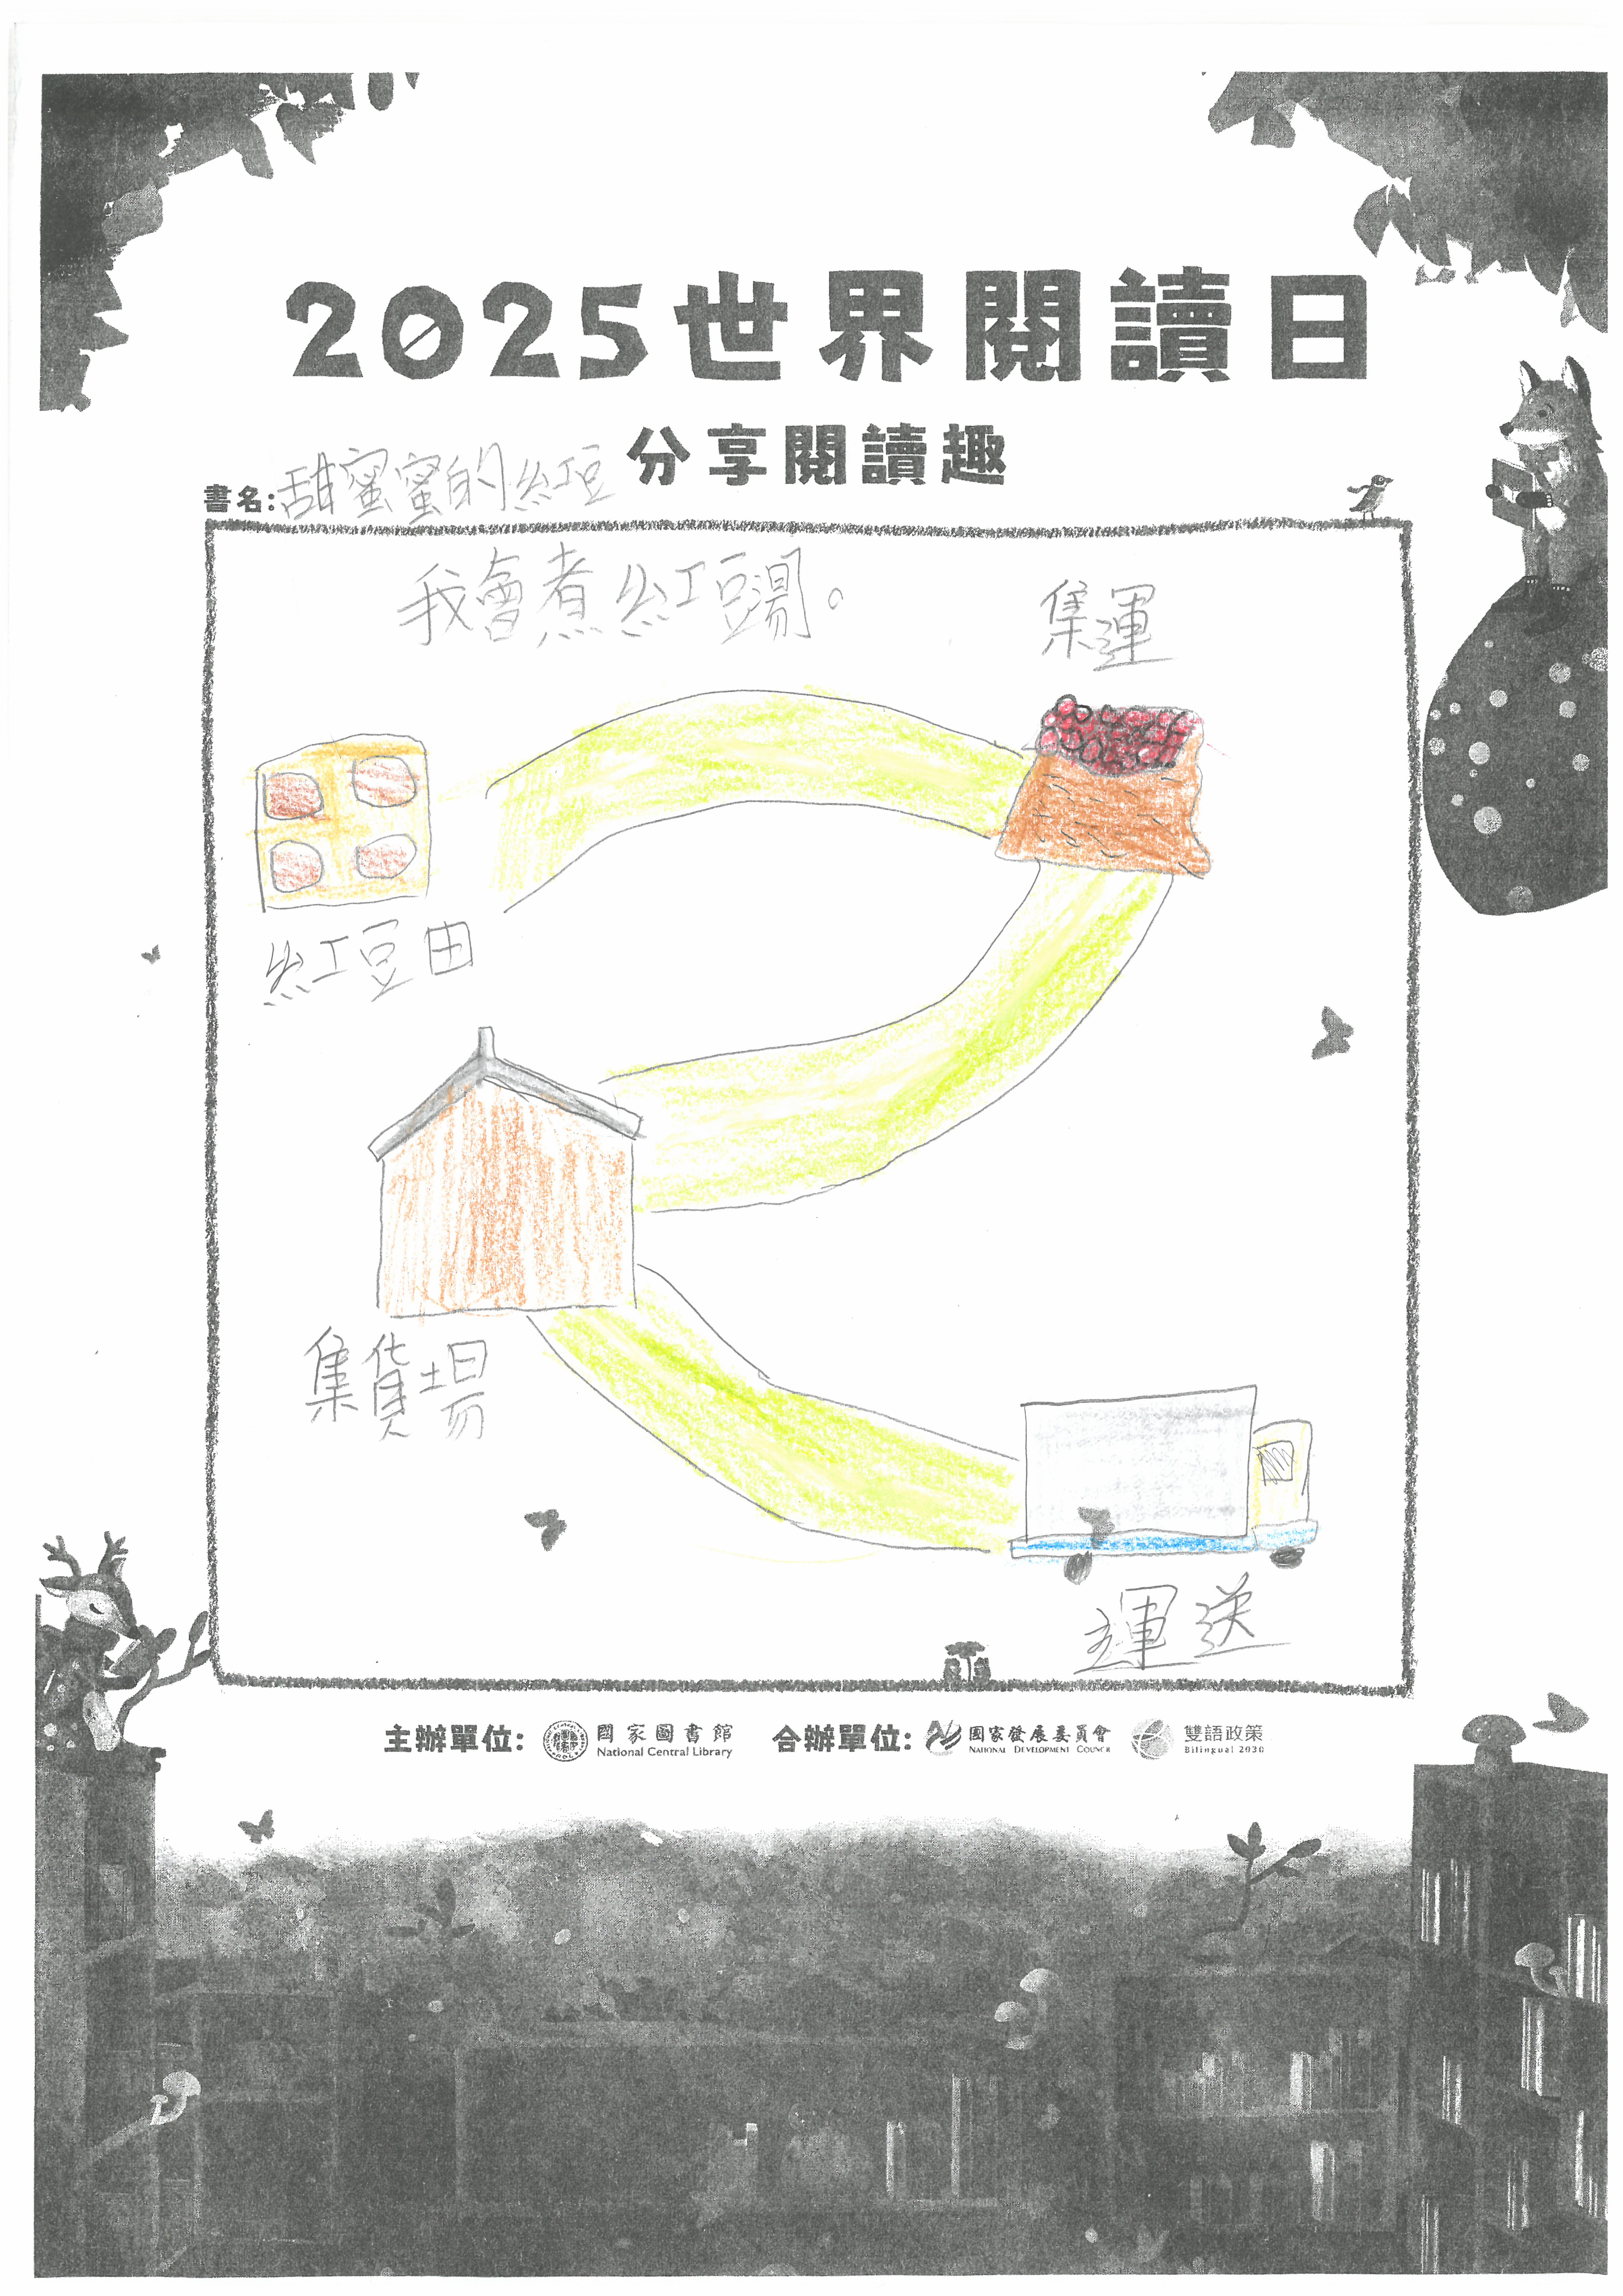 2025世界閱讀日
分享閱讀趣
書名:甜蜜蜜的紅豆
我會煮紅豆湯。
集運
紅豆田
集貨場
運送
主辦單位: 國家圖書館 National Central Library 合辦單位: 國家發展委員會 National Development Council 雙語政策 Bilingual 2030